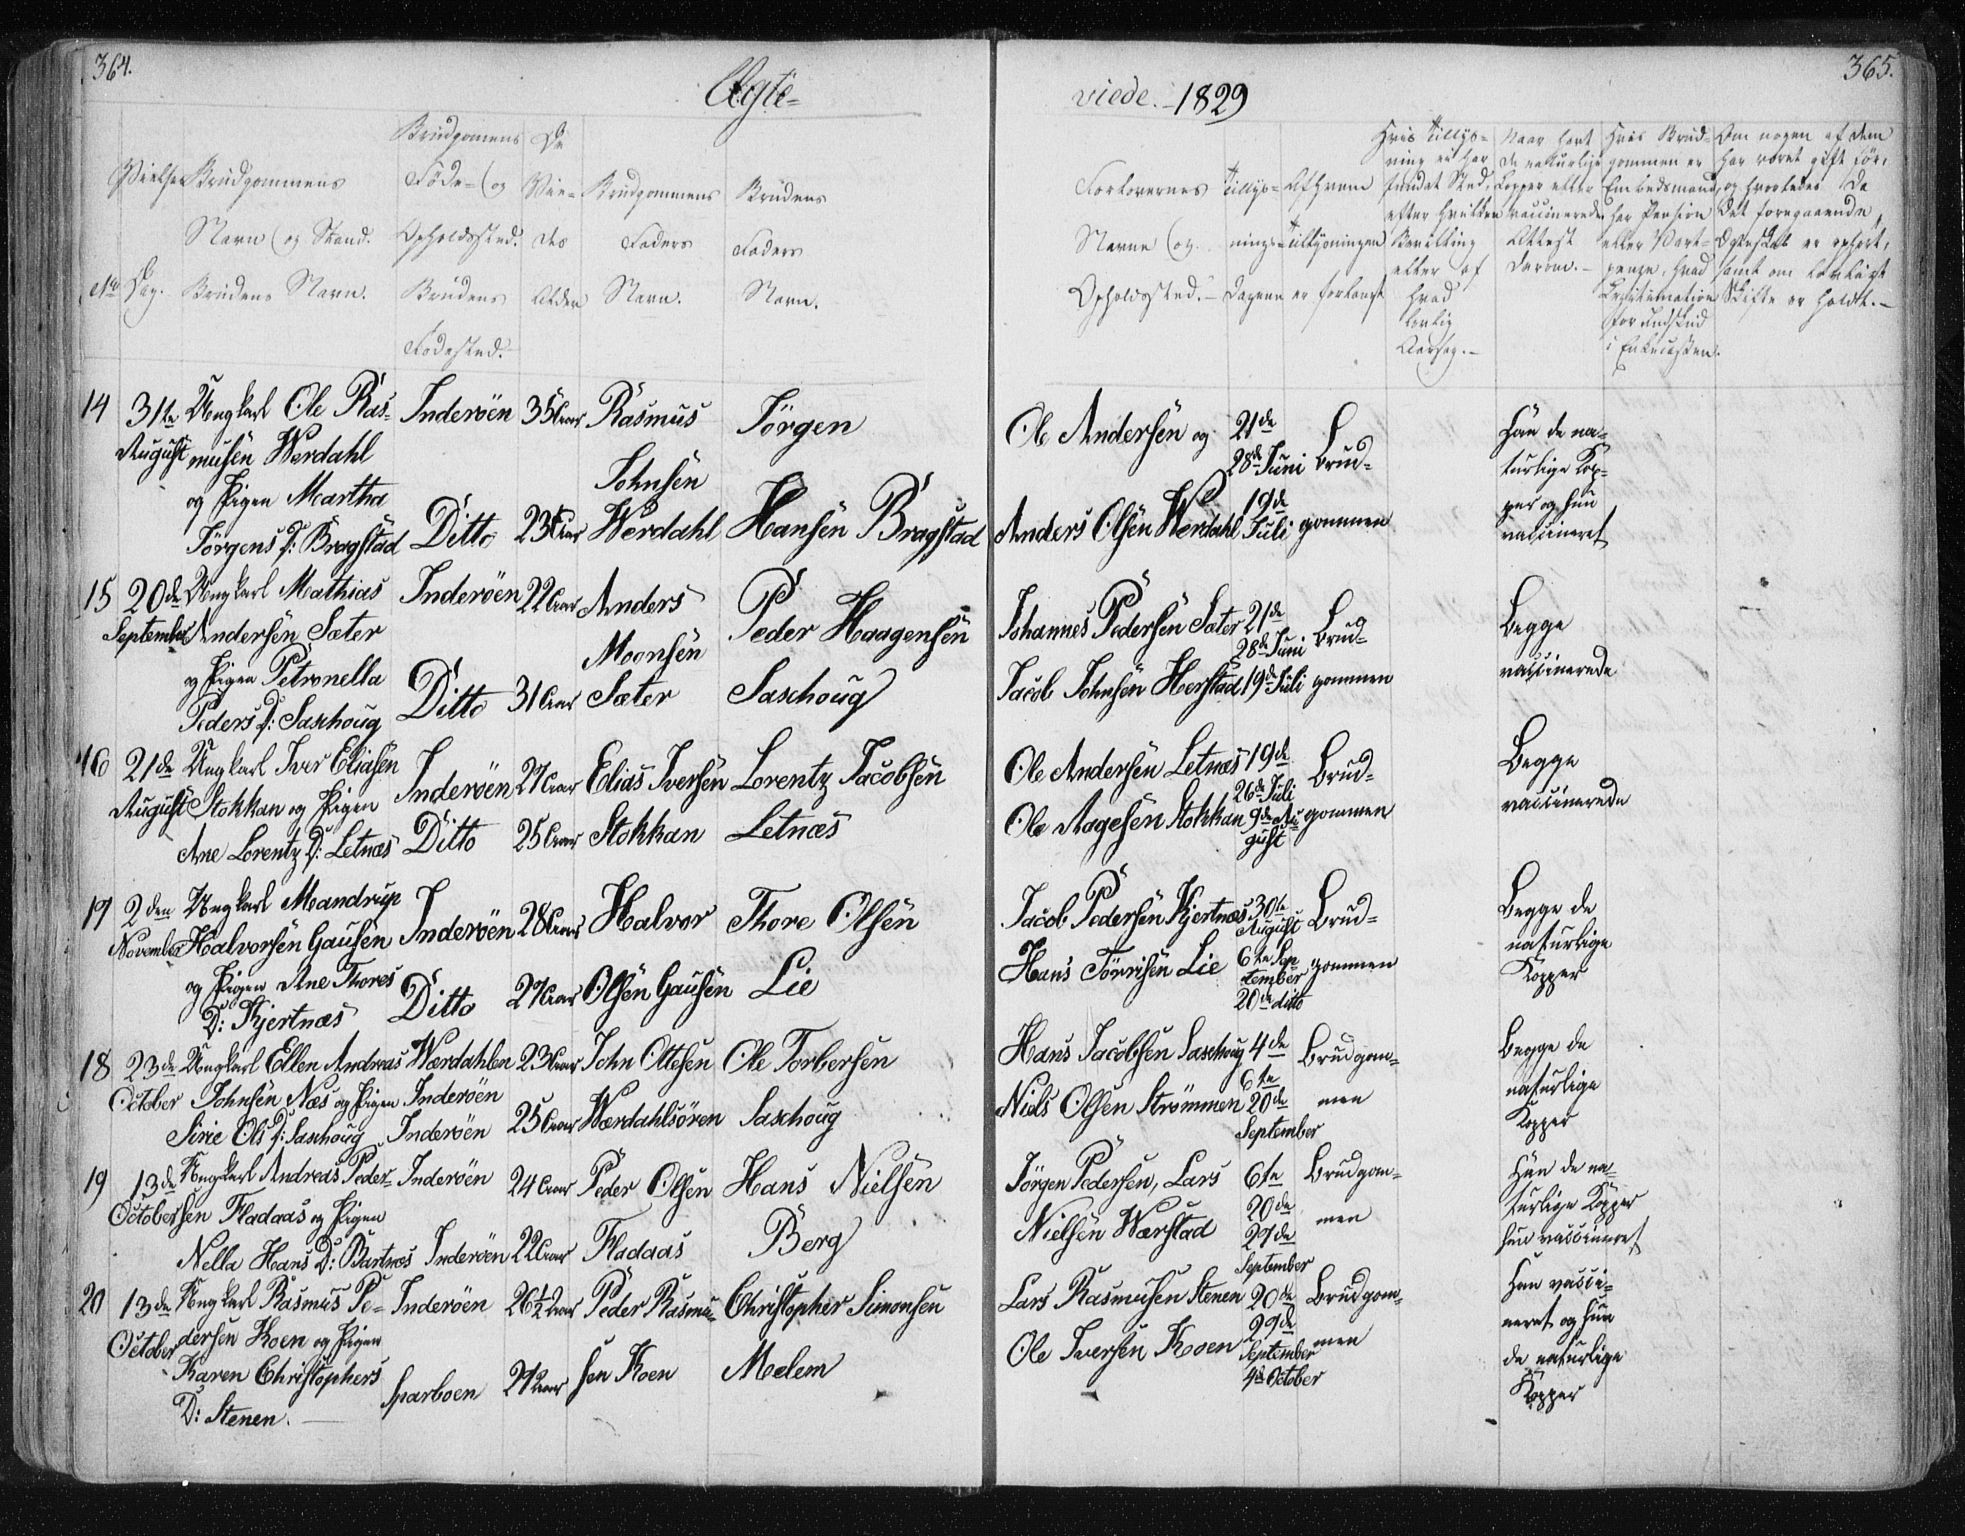 364.
Ægte-
viede. - 1829
365.
No
Vielses Dag.
Brudgommens Navn (og Stand.
Brudens Navn.
Brudgomens Føde- (og Opholdssted.
Brudens Fødested.
De Vie- des Alder
Brudgommens Faders Navn.
Brudens Faders Navn.
Forlovernes Navne (og Opholdssted. -
Tillys- nings- Dagene
Af hvem Tillysningen er forlangt
Hvis Tillys- ning ei har fundet Sted, efter hvilken Bevilling eller af hvad lovlig Aarsag. -
Naar havt de naturlige Kopper eller vaccinerede Attest derom. -
Hvis Brud- gommen er Embedsmand, har Pension eller Vart- penge, hvad Legitimation for Indskud i Enkecassen.
Om nogen af dem har været gift før, og hvorledes Da det foregaaende Ægteskab er ophørt, samt om lovligt Skifte er holdt. -
14
31te August
Ungkarl Ole Ras-
musen Werdahl
og Pigen Martha
Jørgens D: Bragstad
Inderøen
Ditto
35 Aar
23 Aar
Rasmus
Johnsen
Werdahl
Jørgen
Hansen Bragstad
Ole Andersen og
Anders Olsen Werdahl
21de
28de Juni
19de
Juli
Brud-
gommen
Han de na-
turlige Kop-
per og hun
vaccineret
15
20de September
Ungkarl Mathias
Andersen Sæter
og Pigen Petronella
Peders D: Saxhoug
Inderøen
Ditto
22 Aar
31 Aar
Anders
Moonsen
Sæter
Peder Haagensen
Saxhoug
Johannes Pedersen Sæter
Jacob Johnsen Herstad
21de
28de Juni
19de Juli
Brud-
gommen
Begge
vaccinerede
16
21de August
Ungkarl Iver Eliasen
Stokkan og Pigen
Ane Lorentz D: Letnæs
Inderøen
Ditto
27 Aar
25 Aar
Elias Iversen
Stokkan
Lorentz Jacobsen
Letnæs
Ole Andersen Letnæs
Ole Aagesen Stokkan
19de
26de Juli
9de Au-
gust
Brud-
gommen
Begge
vaccinerede
17
2den November
Ungkarl Mandrup
Halvorsen Gausen
og Pigen Ane Thores
D: Kjertnæs
Inderøen
Ditto
28 Aar
27 Aar
Halvor
Olsen Gausen
Thore Olsen
Lie
Jacob Pedersen Kjertnæs
Hans Tørrisen Lie
30te
August
6te Sep
tember
20de ditto
Brud-
gommen
Begge de
naturlige
Kopper
18
23de October
Ungkarl Ellen Andreas
Johnsen Næs og Pigen
Sirie Ols D: Saxhoug
Werdahlen
Inderøen
Inderøen
23 Aar
25 Aar
John Ottesen
Værdahlsøren
Ole Torbersen
Saxhoug
Hans Jacobsen Saxhoug
Niels Olsen Strømmen
4de
6te
20de
September
Brudgom-
men
Begge de
naturlige
Kopper
19
13de October
Ungkarl Andreas Peder-
sen Fladaas og Pigen
Nella Hans D: Bartnæs
Inderøen
Inderøen
24 Aar
22 Aar
Peder Olsen
Fladaas
Hans Nielsen
Berg
Jørgen Pedersen, Lars
Nielsen Wærstad
6te
20de
27de
September
Brudgom-
men
Han de na-
turlige Kopper
hun vaccineret
20
13de October
Ungkarl Rasmus Pe-
dersen Koen og Pigen
Karen Christophers
D: Stenen. -
Inderøen
Sparboen
26½ Aar
27 Aar
Peder Rasmu-
sen Koen
Christopher Simonsen
Mælem
Lars Rasmusen Stenen
Ole Iversen Koen
20de
29de
September
4de October
Brudgom-
men
Han vacci-
neret og hun
de naturlige
Kopper